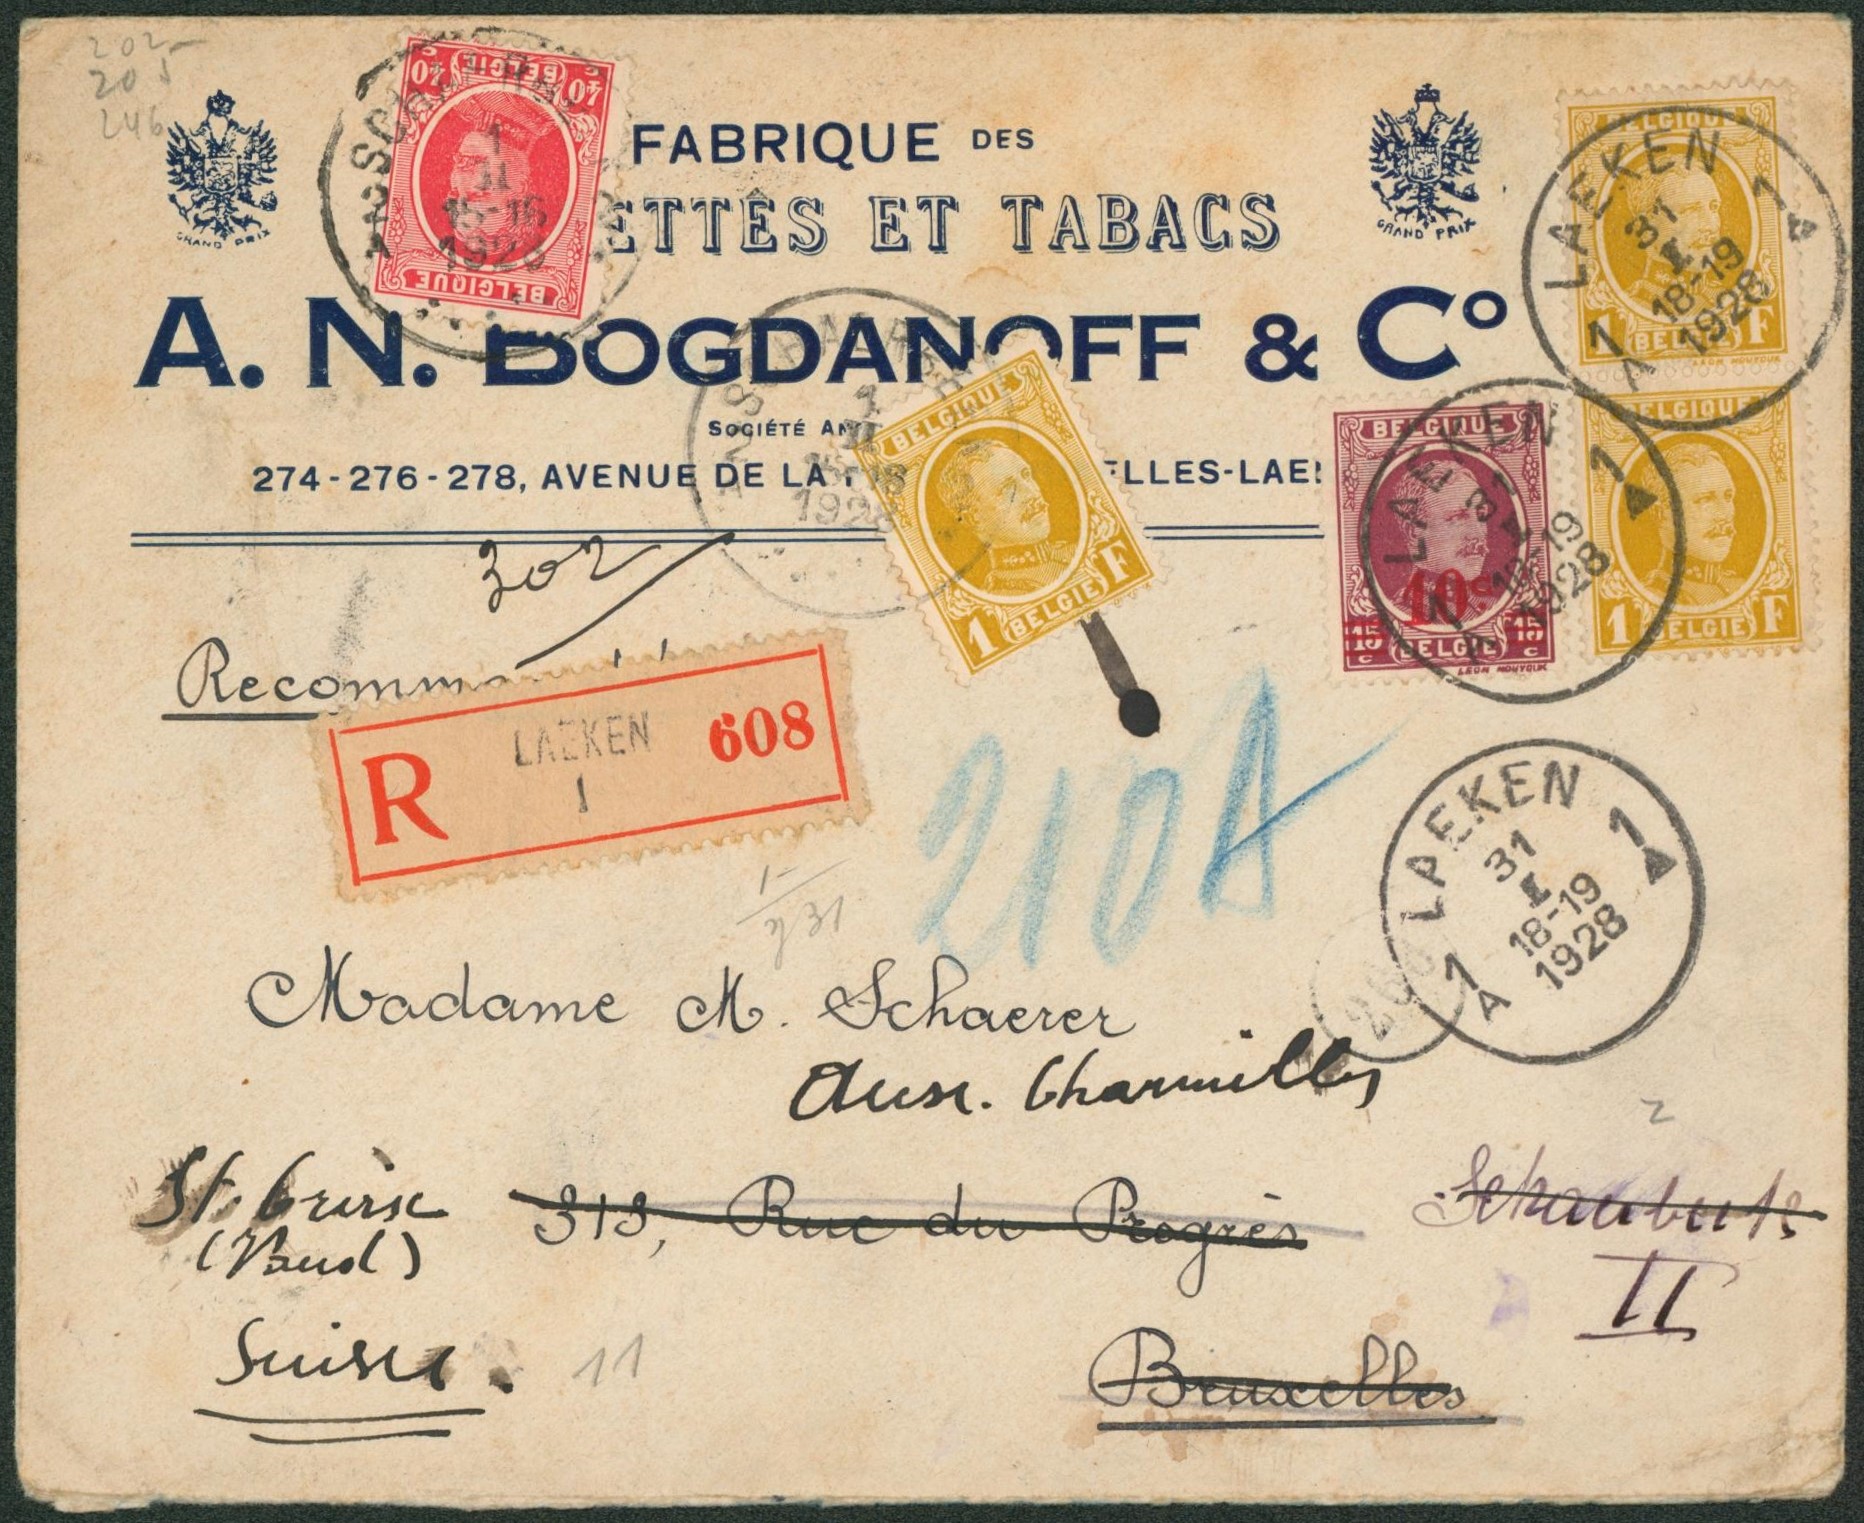 202-
205
246
GRAND PRIX
FABRIQUE DES
ETTES ET TABACS
GRAND PRIX
A. N. BOGDANOFF & Cº
SOCIÉTÉ AN
274-276-278, AVENUE DE LA ELLES-LAE
40 BELGIE 40
BELGIQUE
1
II
15-16
1928
BELGIQUE
1 BELGIE F
1
II
1928
BELGIQUE
1 BELGIE F
LAEKEN 1
31
I
18-19
1928
1 A
BELGIQUE
1 BELGIE F
BELGIQUE
10c
15 c BELGIE 15 c
LEON HOUYOUX
LAEKEN 1
31
I
18-19
1928
1 A
302
Recomm
R LAEKEN 1 608
210A
LAEKEN 1
31
I
18-19
1928
1 A
266
Madame M. Schaerer
Aux. Charmilles
St. Prex
(Vaud)
Suisse.
313, Rue du Progrès
Schaerbeek
II
Bruxelles
11